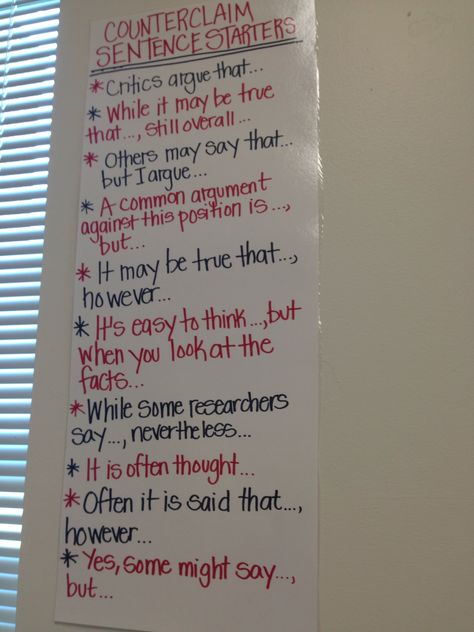 COUNTERCLAIM
SENTENCE STARTERS
* Critics argue that...
* While it may be true
that..., still overall...
* Others may say that...
but I argue...
* A common argument
against this position is...,
but...
* It may be true that...,
however...
* It's easy to think...,but
when you look at the
facts...
* While some researchers
say..., nevertheless...
* It is often thought...
* Often it is said that...,
however...
* Yes, some might say...,
but...